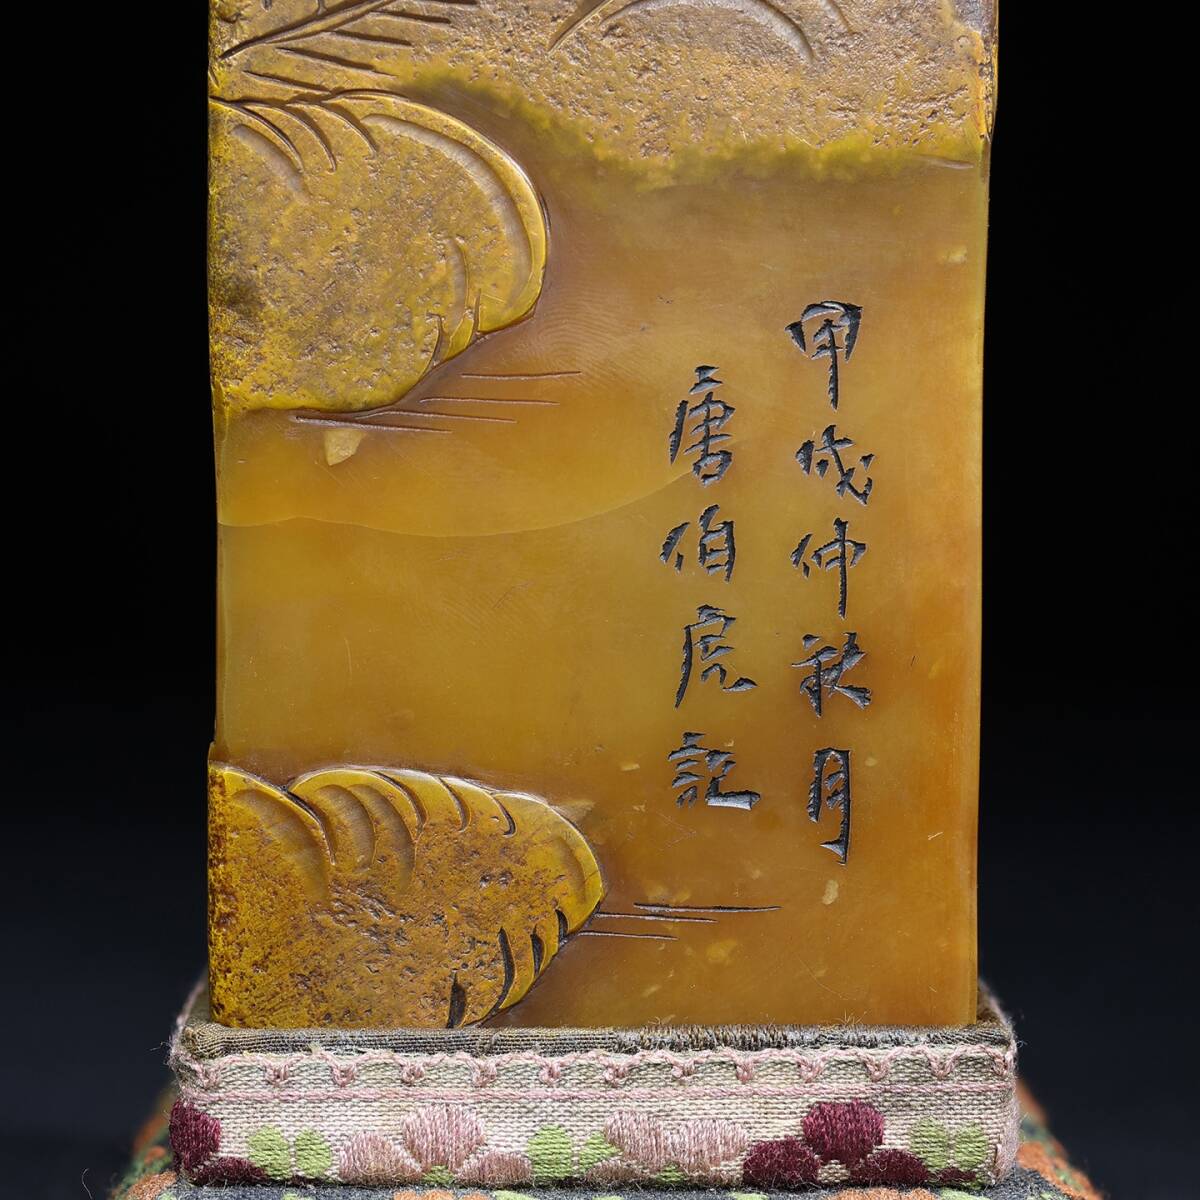 甲戌仲秋月
唐伯虎記